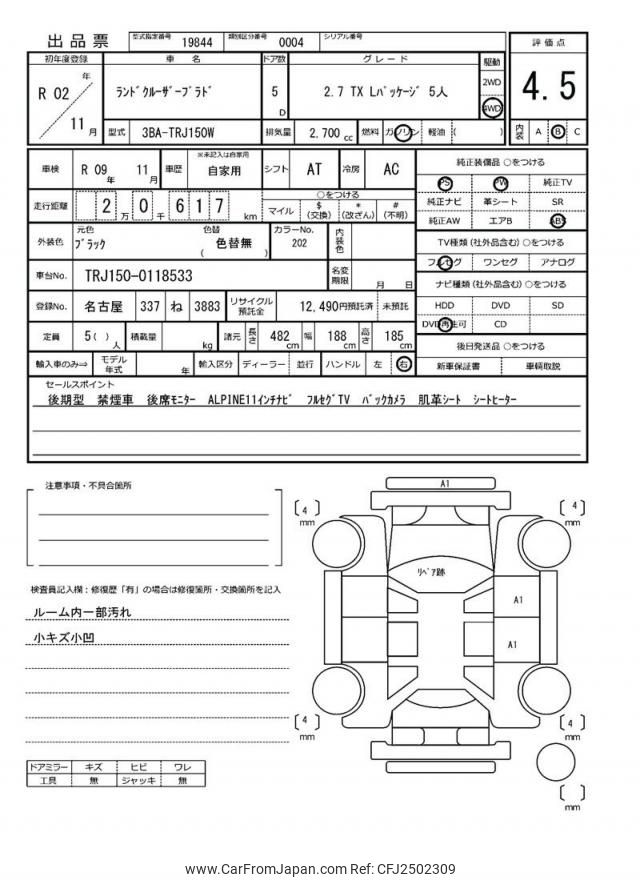 出品票 型式指定番号 19844 類別区分番号 0004 シリアル番号
初年度登録 車 名 ドア数 グレード 駆動 評価点
R 02 年 11 月 ﾗﾝﾄﾞｸﾙｰｻﾞｰﾌﾟﾗﾄﾞ 5 D 2.7 TX Lﾊﾟｯｹｰｼﾞ 5人 2WD 4WD 4.5
型式 3BA-TRJ150W 排気量 2,700 cc 燃料 ガソリン 軽油 ( ) 内装 A B C
車検 R 09 年 11 月 車歴 ※未記入は自家用 自家用 シフト AT 冷房 AC
走行距離 2 万 0 千 6 1 7 km ○をつける マイル $ (交換) * (改ざん) # (不明)
外装色 元色 ﾌﾞﾗｯｸ 色替 ( 色替無 ) カラーNo. 202 内装色
車台No. TRJ150-0118533 名変期限 月 日
登録No. 名古屋 337 ね 3883 リサイクル預託金 12,490円預託済 未預託
定員 5( ) 人 積載量 kg 諸元 長さ 482 cm 幅 188 cm 高さ 185 cm
輸入車のみ⇒ モデル年式 年 輸入区分 ディーラー 並行 ハンドル 左 右
純正装備品 ○をつける
PS PW 純正TV
純正ナビ 革シート SR
純正AW エアB ABS
TV種類 (社外品含む) ○をつける
フルセグ ワンセグ アナログ
ナビ種類 (社外品含む) ○をつける
HDD DVD SD
DVD再生可 CD
後日発送品 ○をつける
新車保証書 車輌取説
セールスポイント
後期型 禁煙車 後席ﾓﾆﾀｰ ALPINE11ｲﾝﾁﾅﾋﾞ ﾌﾙｾｸﾞTV ﾊﾞｯｸｶﾒﾗ 肌革ｼｰﾄ ｼｰﾄﾋｰﾀｰ
注意事項・不具合箇所
検査員記入欄：修復歴「有」の場合は修復箇所・交換箇所を記入
ルーム内一部汚れ
小キズ小凹
ドアミラー キズ ヒビ ワレ
工具 無 ジャッキ 無
A1
[ 4 ] mm
[ 4 ] mm
ﾘﾍﾟｱ跡
A1
A1
[ 4 ] mm
[ 4 ] mm
[ ] mm
www.CarFromJapan.com Ref: CFJ2502309